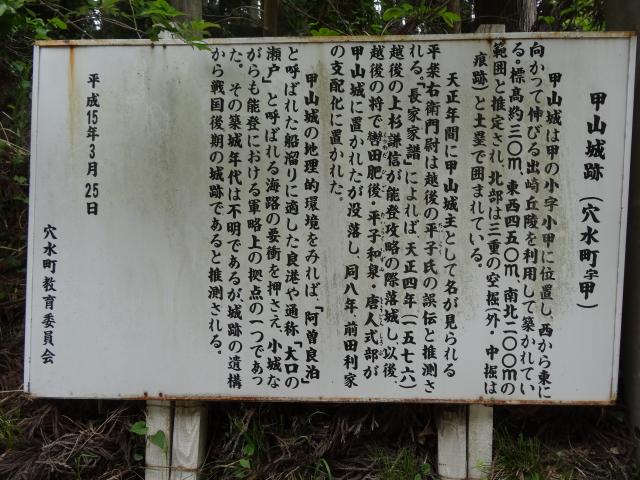 甲山城跡（穴水町字甲）
甲山城は甲の小字小甲に位置し、西から東に
向かって伸びる出崎丘陵を利用して築かれてい
る。標高約三〇m、東西四五〇m、南北二〇〇mの
範囲と推定され、北部は三重の空掘（外・中掘は
痕跡）と土塁で囲まれている。
天正年間に甲山城主として名が見られる
平楽右衛門尉は越後の平子氏の誤伝と推測さ
れる。「長家家譜」によれば、天正四年（一五七六）
越後の上杉謙信が能登攻略の際落城し、以後、
越後の将で轡田肥後・平子和泉・唐人式部が
甲山城に置かれたが没落し、同八年、前田利家
の支配化に置かれた。
甲山城の地理的環境をみれば、「阿曽良泊」
と呼ばれた船溜りに適した良港や通称「大口の
瀬戸」と呼ばれる海路の要衝を押さえ、小城な
がらも能登における軍略上の拠点の一つであっ
た。その築城年代は不明であるが、城跡の遺構
から戦国後期の城跡であると推測される。
平成15年3月25日
穴水町教育委員会